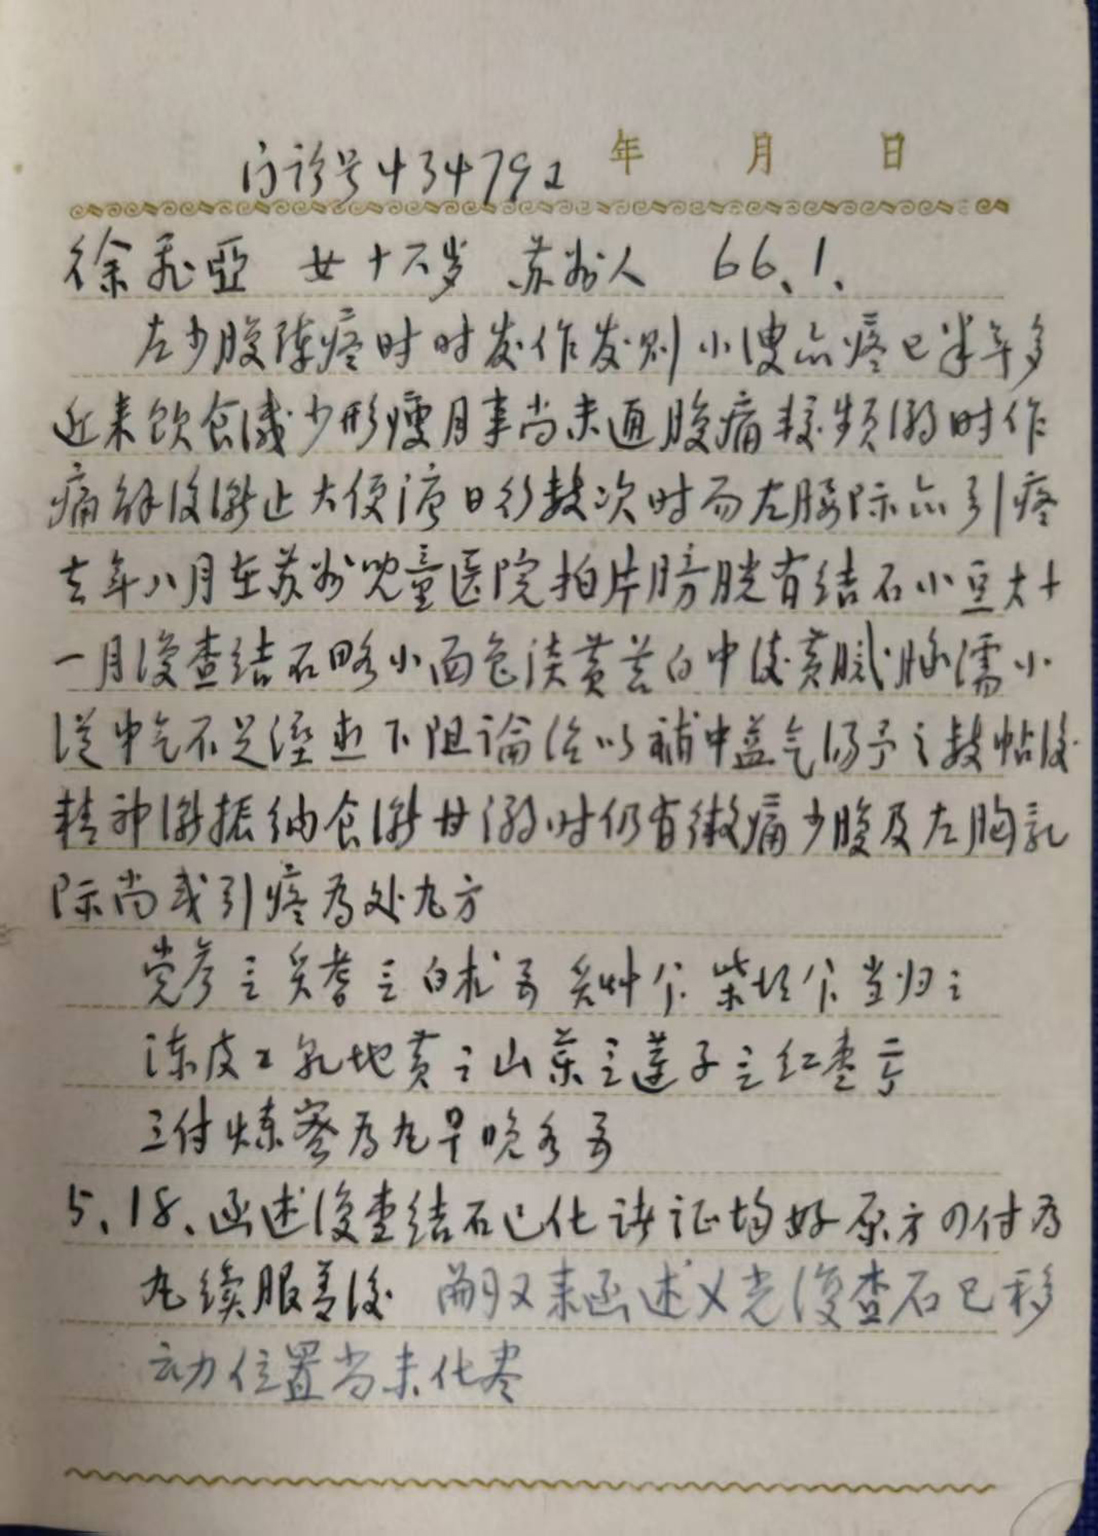 年 月 日
门诊号434792
徐飛亞 女 十六岁 苏州人 66.1.
左少腹阵疼时时发作发则小溲亦疼已半年多
近来饮食减少形瘦月事尚未通腹痛较频溺时作
痛解後渐止大便溏日行数次时而左腰际亦引疼
去年八月在苏州児童医院拍片膀胱有结石小豆大十
一月復查结石略小面色淡黄苔白中後黄腻脉濡小
従中气不足湿热下阻論治以補中益气汤予之数帖後
精神渐振纳食渐甘溺时仍有微痛少腹及左胸乳
际尚或引疼为处丸方
党参三 炙耆三 白朮 炙艸 柴胡 当归二
陈皮 地黄二 山药三 莲子三 红枣
三付炼蜜为丸早晚各
5.18.函述復查结石已化诸证均好原方四付为
丸续服善後 嗣又来函述X光復查石已移
动位置尚未化尽